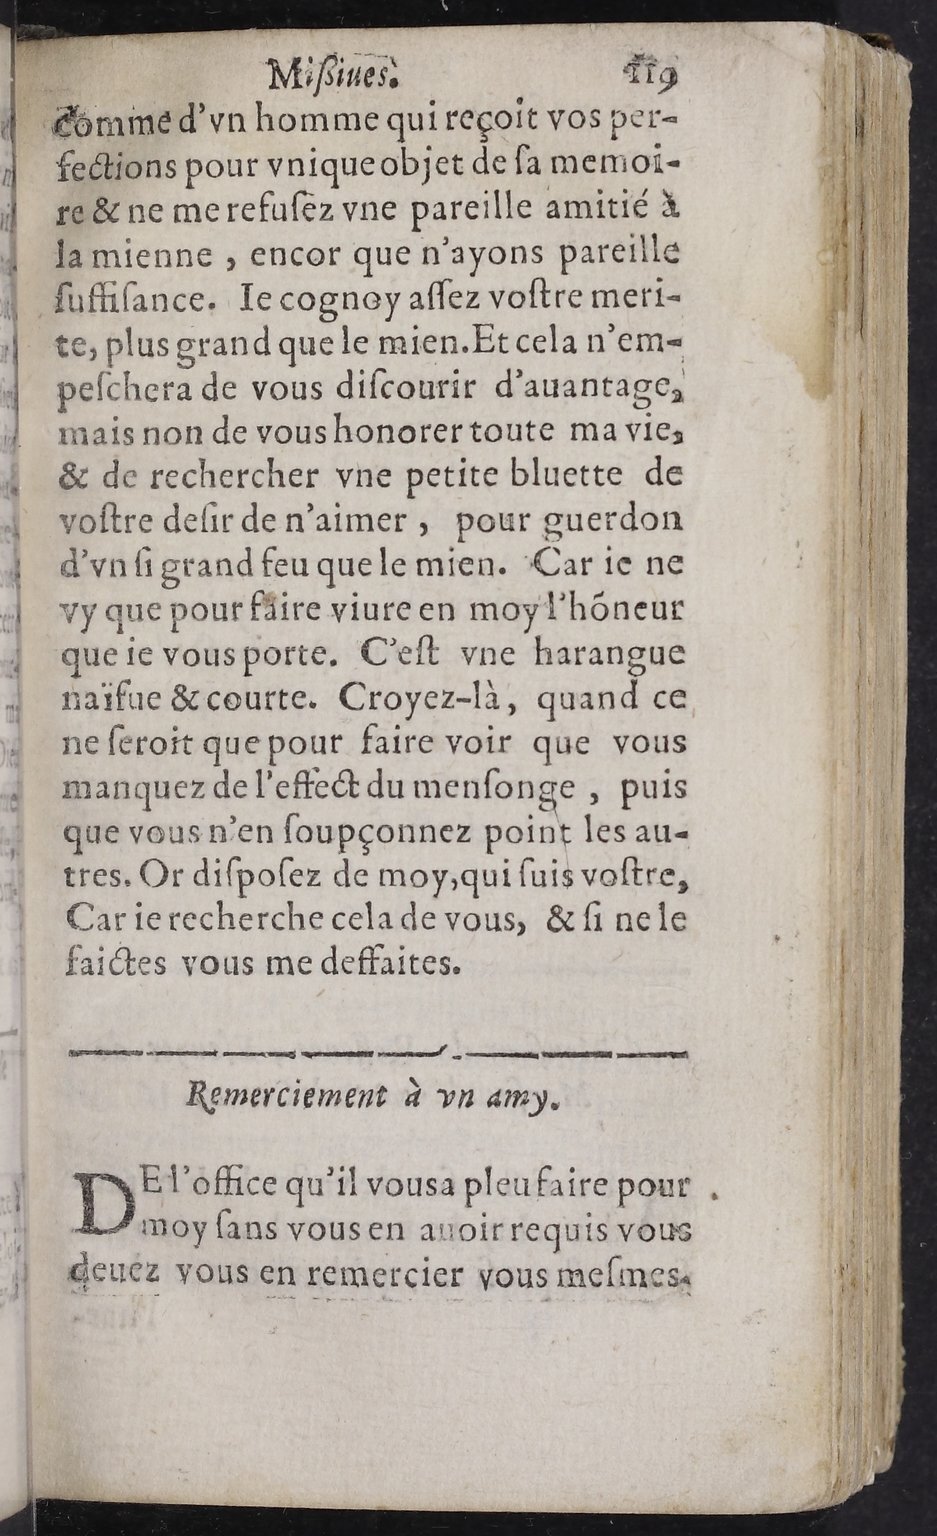 Miſsiues. 119
Comme d'vn homme qui reçoit vos per-
fections pour vnique objet de ſa memoi-
re & ne me refuſez vne pareille amitié à
la mienne , encor que n'ayons pareille
ſuffiſance. Ie cognoy aſſez voſtre meri-
te, plus grand que le mien. Et cela n'em-
peſchera de vous diſcourir d'auantage,
mais non de vous honorer toute ma vie,
& de rechercher vne petite bluette de
voſtre deſir de n'aimer , pour guerdon
d'vn ſi grand feu que le mien. Car ie ne
vy que pour faire viure en moy l'hôneur
que ie vous porte. C'eſt vne harangue
naïfue & courte. Croyez-là, quand ce
ne ſeroit que pour faire voir que vous
manquez de l'effect du menſonge , puis
que vous n'en ſoupçonnez point les au-
tres. Or diſpoſez de moy, qui ſuis voſtre,
Car ie recherche cela de vous, & ſi ne le
faictes vous me deffaites.
Remerciement à vn amy.
DE l'office qu'il vous a pleu faire pour
moy ſans vous en auoir requis vous
deuez vous en remercier vous meſmes.